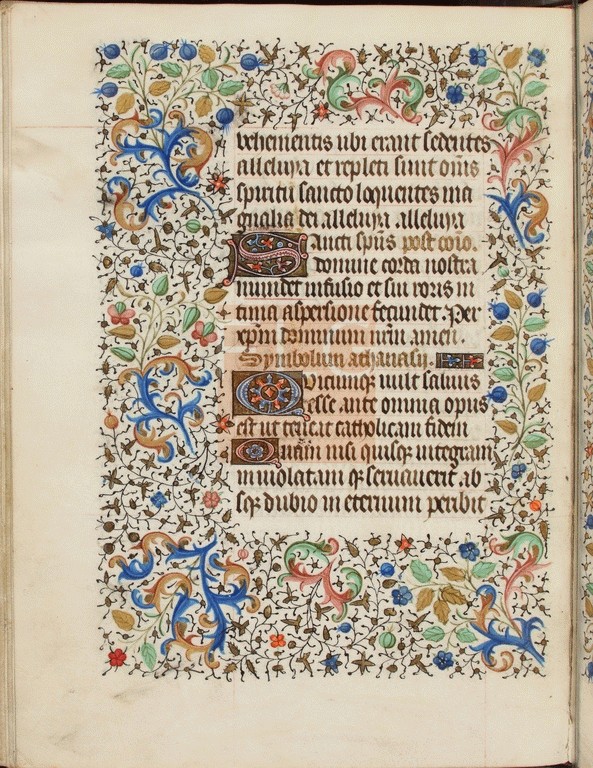 vehementis ubi erant sedentes
alleluya et repleti sunt om̄s
spiritu sancto loquentes ma
gnalia dei alleluya alleluya
Sancti spūs post cōio.
domine corda nostra
mundet infusio et sui roris in
tima aspersione fecundet. Per
xpm̄ dominum nr̄m amen.
Symbolum athanasij.
Quicumqꝫ vult saluus
esse ante omnia opus
est ut teneat catholicam fidem
Quam nisi quisqꝫ integram
inuiolatam qꝫ seruauerit ab
sqꝫ dubio in eternum peribit